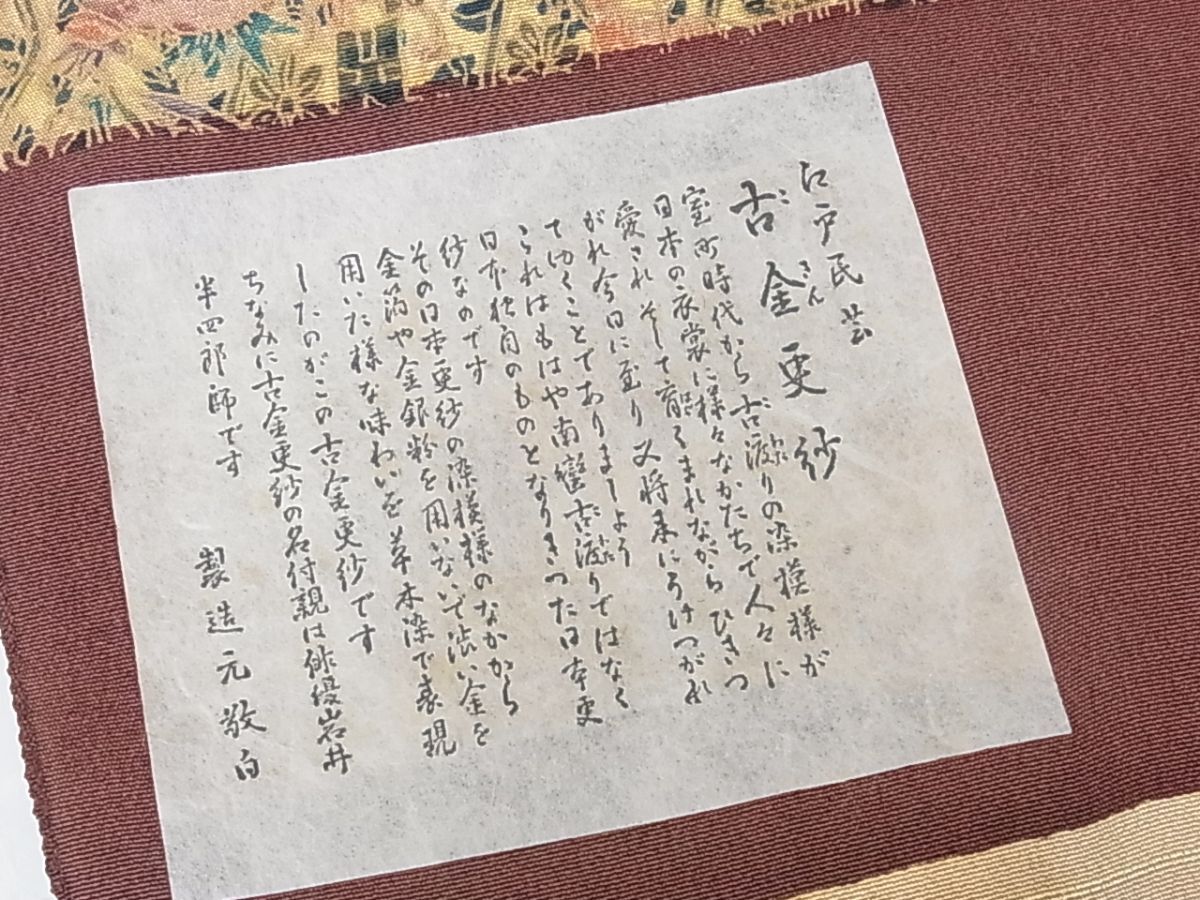 江戸民芸
古金更紗
ご きん
室町時代から古渡りの染模様が
日本の衣裳に様々なかたちで人々に
愛され そして育くまれながら ひきつ
がれ今日に至り 又将来にうけつがれ
てゆくことでありましょう
これはもはや南蛮古渡りではなく
日本独自のものとなりきった日本更
紗なのです
その日本更紗の染模様のなかから
金箔や金銀粉を用いないで渋い金を
用いた様な味わいを草木染で表現
したのがこの古金更紗です
ちなみに古金更紗の名付親は俳優岩井
半四郎師です 製造元敬白